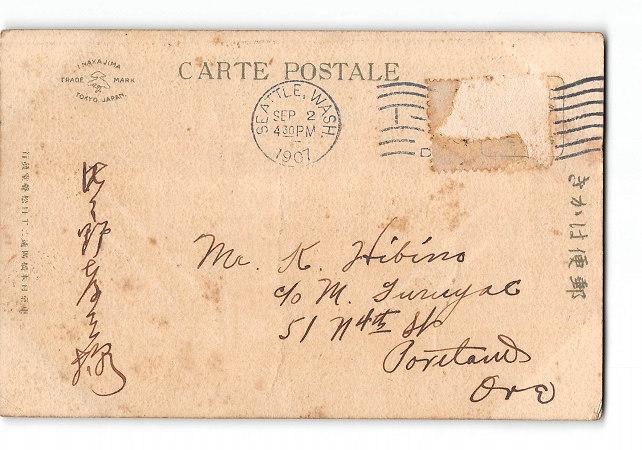 T.NAKAJIMA
TRADE MARK
TOKYO, JAPAN.
CARTE POSTALE
SEATTLE, WASH.
SEP 2
4 30 PM
1907
きかは便郵
Mr. K. Hibino
c/o M. Furuya C
51 N 4th St
Portland
Ore